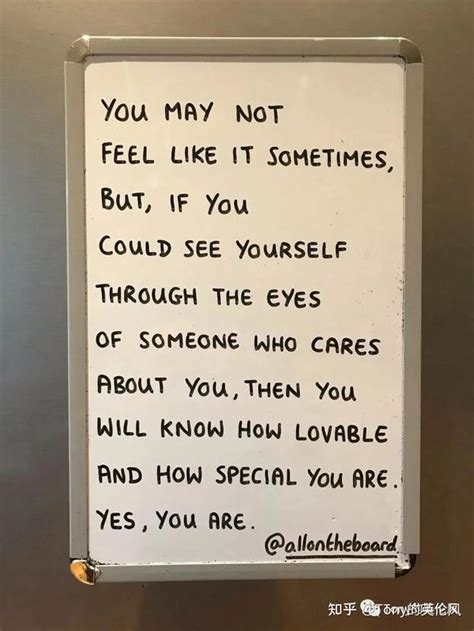 YOU MAY NOT
FEEL LIKE IT SOMETIMES,
BUT, IF YOU
COULD SEE YOURSELF
THROUGH THE EYES
OF SOMEONE WHO CARES
ABOUT YOU, THEN YOU
WILL KNOW HOW LOVABLE
AND HOW SPECIAL YOU ARE.
YES, YOU ARE.
@allontheboard
知乎 @Tony的英伦风